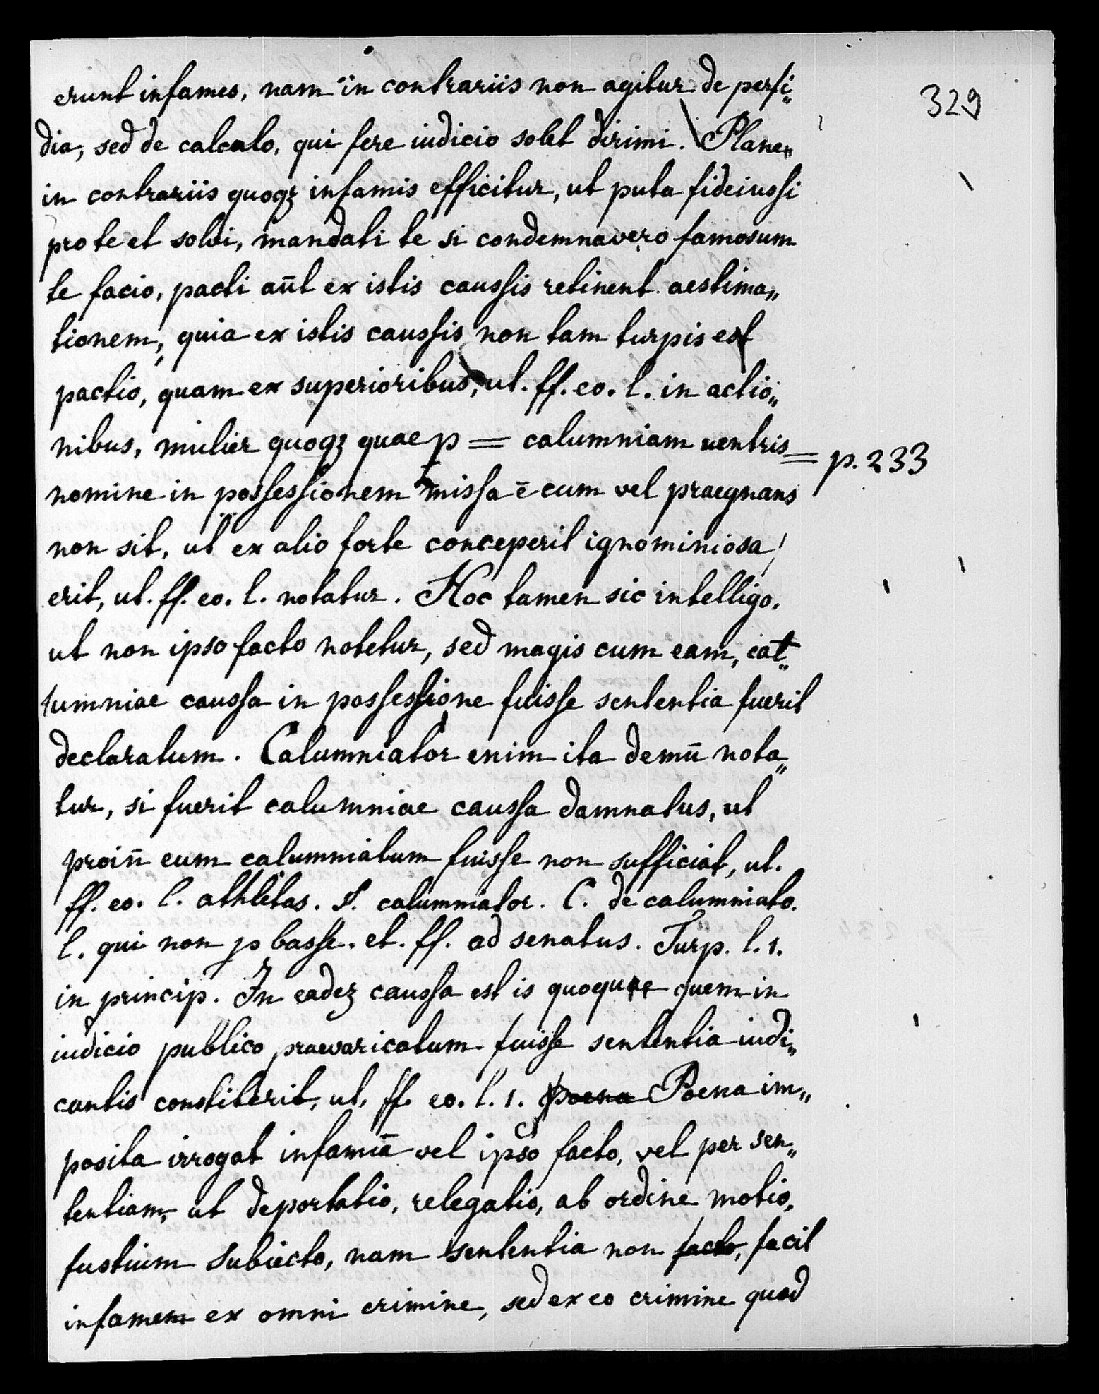 329
erunt infames, nam in contrariis non agitur de perfi„
dia, sed de calculo, qui fere iudicio solet dirimi. Plane„
in contrariis quoqȝ infamis efficitur, ut puta fideiussi
pro te et solvi, mandati te si condemnavero famosum
te facio, pacti aūt ex istis caussis retinent aestima„
tionem, quia ex istis caussis non tam turpis est
pactio, quam ex superioribus, ut. ff. eo. l. in actio„
nibus, mulier quoqȝ quae p = calumniam ventris
= p. 233
nomine in possessionem missa ē cum vel praegnans
non sit, ut ex alio forte conceperit ignominiosa
erit, ut. ff. eo. l. notatur. Hoc tamen sic intelligo.
ut non ipso facto notetur, sed magis cum eam, cal„
lumniae caussa in possessione fuisse sententia fuerit
declaratum. Calumniator enim ita demū nota„
tur, si fuerit calumniae caussa damnatus, ut
proiñ eum calumniatum fuisse non sufficiat, ut.
ff. eo. l. athletas. §. calumniator. C. de calumniato.
l. qui non p basse. et. ff. ad senatus. Turp. l. 1.
in princip. In eadeȝ caussa est is quoque quem in
iudicio publico praevaricatum fuisse sententia iudi„
cantis constiterit, ut. ff. eo. l. 1. poena Poena im„
posita irrogat infamiā vel ipso facto, vel per sen„
tentiam, ut deportatio, relegatio, ab ordine motio,
fustium subiecto, nam sententia non facto, facit
infamem ex omni crimine, sed ex eo crimine quod